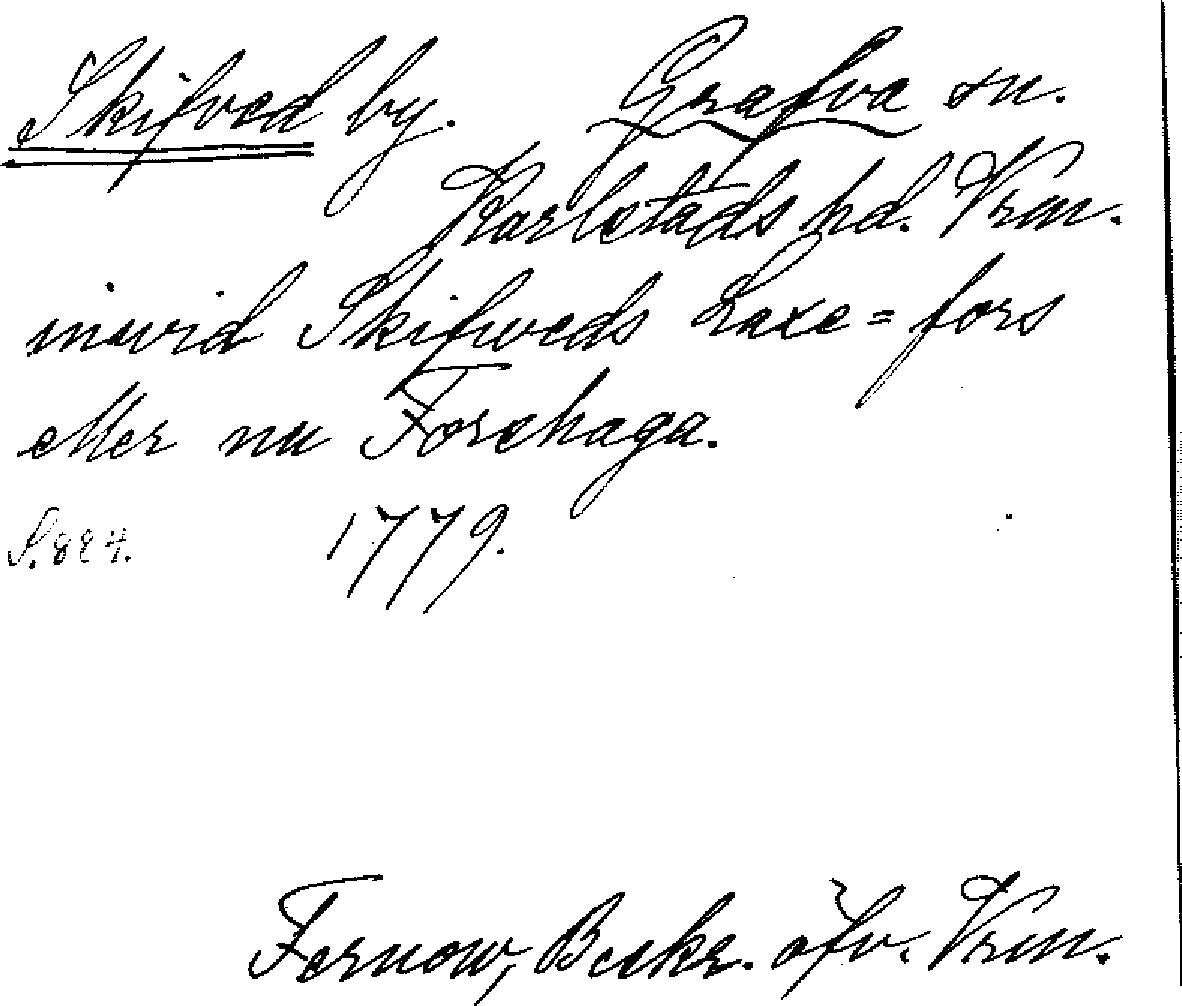 Skifved by. Grafva sn.
Karlstads hd. Vrm.
invid Skifweds Laxe=fors
eller nu Forshaga.
S. 884. 1779.
Fernow, Beskr. öfv. Vrm.